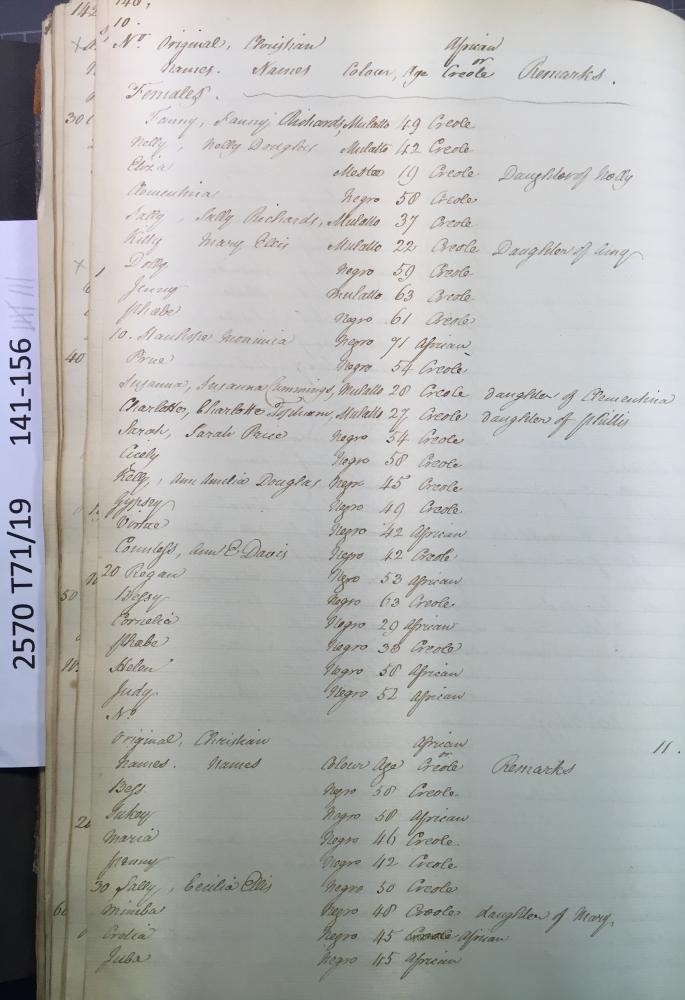 142
146,
10.
No. Original, Christian African
or
Names. Names Colour, Age Creole Remarks.
Females.
30
Fanny, Fanny Richards, Mulatto 49 Creole
Nelly, Nelly Douglas Mulatto 42 Creole
Eliza Mestee 19 Creole Daughter of Nelly
Clementina Negro 58 Creole
Sally, Sally Richards, Mulatto 37 Creole
Kitty Mary Ellis Mulatto 22 Creole Daughter of
Dolly Negro 59 Creole
Jenny Mulatto 63 Creole
Phabe Negro 61 Creole
10. Monimia Negro 71 African
40
Prue Negro 54 Creole
Susanna, Susanna Cummings, Mulatto 28 Creole daughter of Clementina
Charlotte, Charlotte Mulatto 27 Creole daughter of Phillis
Sarah, Sarah Price Negro 54 Creole
Cicely Negro 58 Creole
Kelly, Ann Amelia Douglas Negro 45 Creole
Gypsey Negro 49 Creole
Virtue Negro 42 African
Countess, Ann E Davis Negro 42 Creole
20 Regan Negro 53 African
50
Bessy Negro 63 Creole
Cornelia Negro 29 African
Phabe Negro 38 Creole
Helen Negro 58 African
Judy Negro 52 African
No.
Original, Christian African 11.
or
Names. Names Colour Age Creole Remarks
Bess Negro 58 Creole
Negro 58 African
Maria Negro 46 Creole
Negro 42 Creole
30 Sally, Cecilia Ellis Negro 50 Creole
Mimba Negro 48 Creole daughter of Mary
Negro 45 Creole African
Juba Negro 45 African
2570 T71/19 141-156